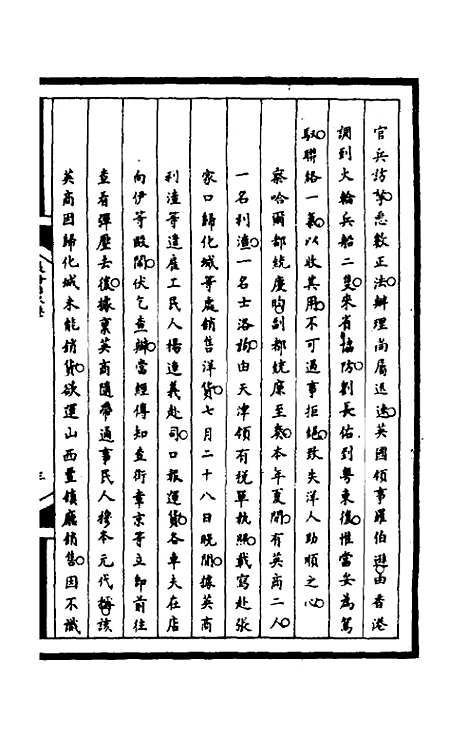 官兵訪拏悉數正法辦理尚屬迅速英國領事羅伯遜由香港
調到火輪兵船二隻來省協防劉長佑到粵東後惟當妥為駕
馭聯絡一氣以收其用不可遇事拒絕致失洋人助順之心
察哈爾都統慶昀副都統廉至奏本年夏間有英商二人
一名利渣一名士洛均由天津領有稅單執照載寫赴張
家口歸化城等處銷售洋貨七月二十八日晚間據英商
利渣等遣雇工民人楊進義赴司口報運貨各車夫在店
向伊等毆鬧伏乞查辦當經得知查街章京等立即前往
查看彈壓去後據稟英商隨帶通事民人穆本元代稱該
英商因歸化城未能銷貨欲運山西豐鎮廳銷售因不識
三